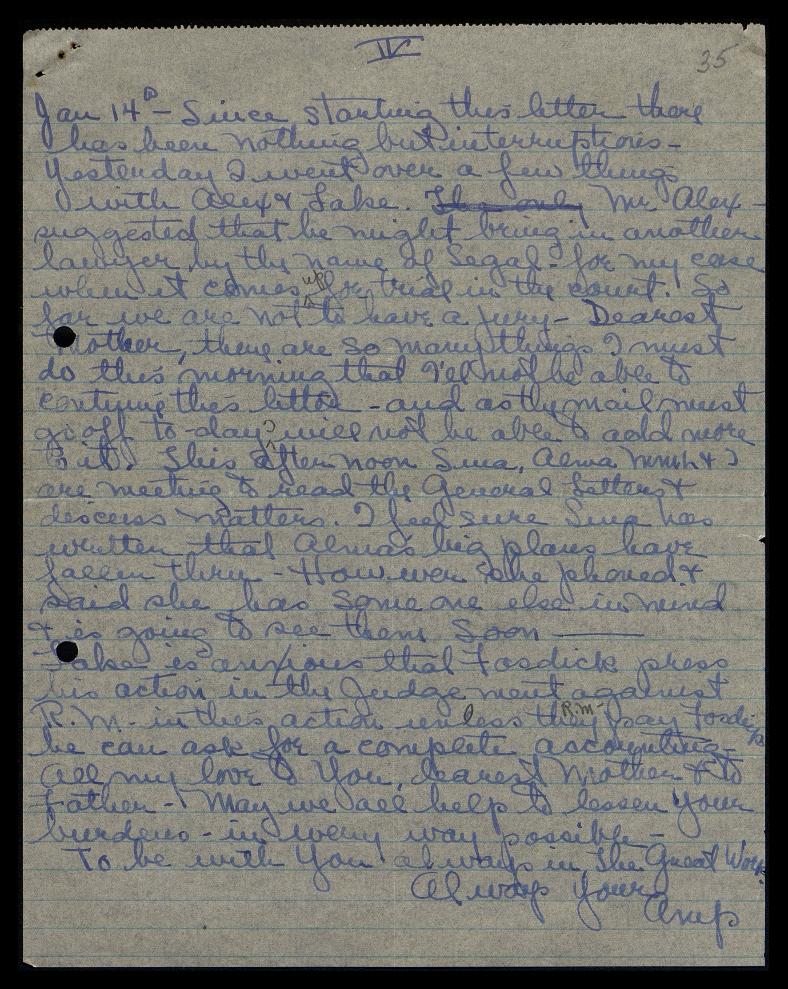 IV
35
Jan 14th - Since starting this letter there
has been nothing but interruptions -
Yesterday I went over a few things
with Alex & Lake. The only Mr Alex -
suggested that he might bring in another
lawyer by the name of Segal - for my case
when it comes up for trial in the court. So
far we are not to have a jury - Dearest
Mother, there are so many things I must
do this morning that I'll not be able to
continue this letter - and as the mail must
go off to-day I will not be able to add more
to it. This afternoon Sina, Alma & I
are meeting to read the General Letters &
discuss matters. I feel sure Sina has
written that Alma's big plans have
fallen thru - However she phoned &
said she has some one else in mind
& is going to see them soon ———
Lake is anxious that Fosdick press
his action in the Judgement against
R.M. - in this action unless they R.M. pay Fosdick
he can ask for a complete accounting -
All my love to You, dearest Mother & to
Father - May we all help to lessen Your
burdens - in every way possible -
To be with You always in The Great Work
Always Yours